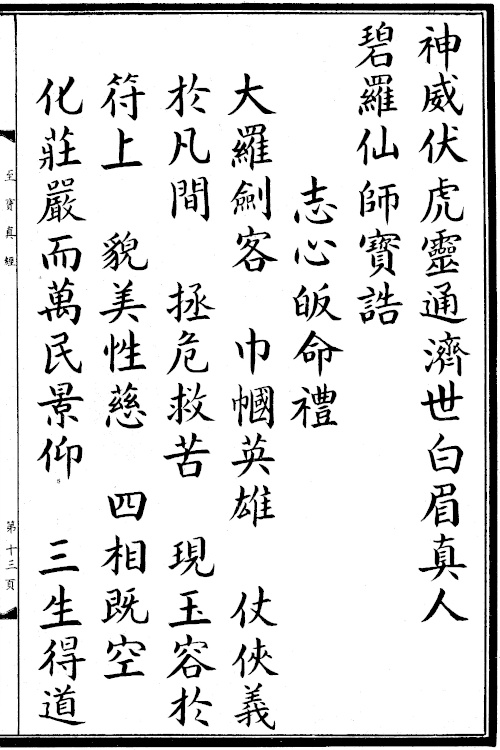 神威伏虎靈通濟世白眉真人
碧羅仙師寶誥
志心皈命禮
大羅劍客 巾幗英雄 仗俠義
於凡間 拯危救苦 現玉容於
符上 貌美性慈 四相既空
化莊嚴而萬民景仰 三生得道
至寶真經 第十三頁